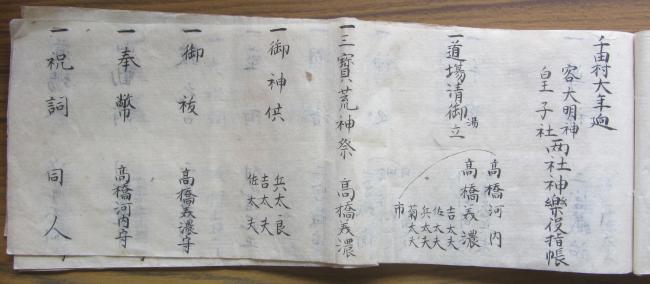 千田村大年廻
客大明神
皇子社
両社神樂役指帳
一道場清御湯立
高橋河内
高橋美濃
吉太夫
佐太夫
兵太夫
菊太夫
市
一三寶荒神祭 高橋美濃
一御神供
兵太良
吉太夫
佐太夫
一御祓 高橋美濃守
一奉幣 高橋河内守
一祝詞 同人